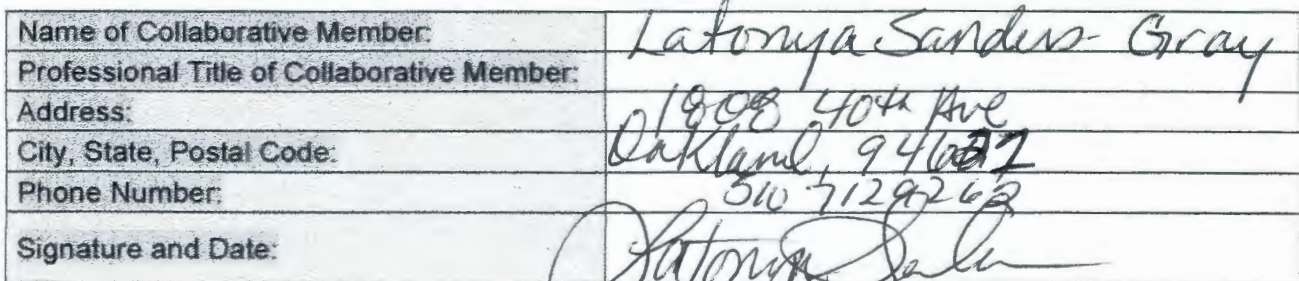 Name of Collaborative Member: Latonya Sanders- Gray
Professional Title of Collaborative Member:
Address: 1808 40th Ave
City, State, Postal Code: Oakland, 
Phone Number: 510 7129262
Signature and Date: Latonya